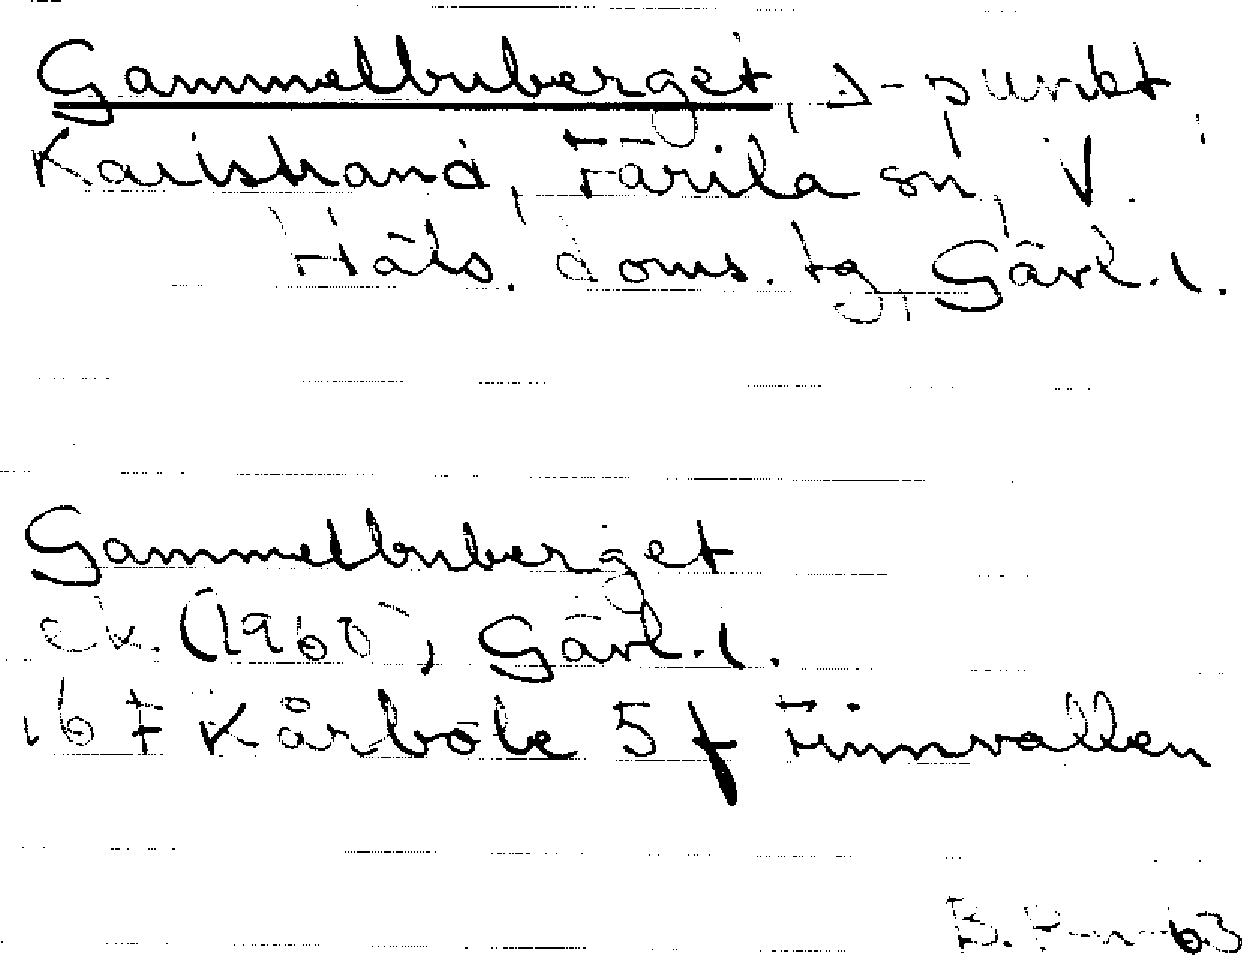 Gammelbuberget, Δ-punkt
Karlstrand, Färila sn, V.
Häls. doms. tg, Gävl. l.
Gammelbuberget
ek. (1960), Gävl. l.
16 F Kårböle 5 f Finnvallen
B. P-n -63